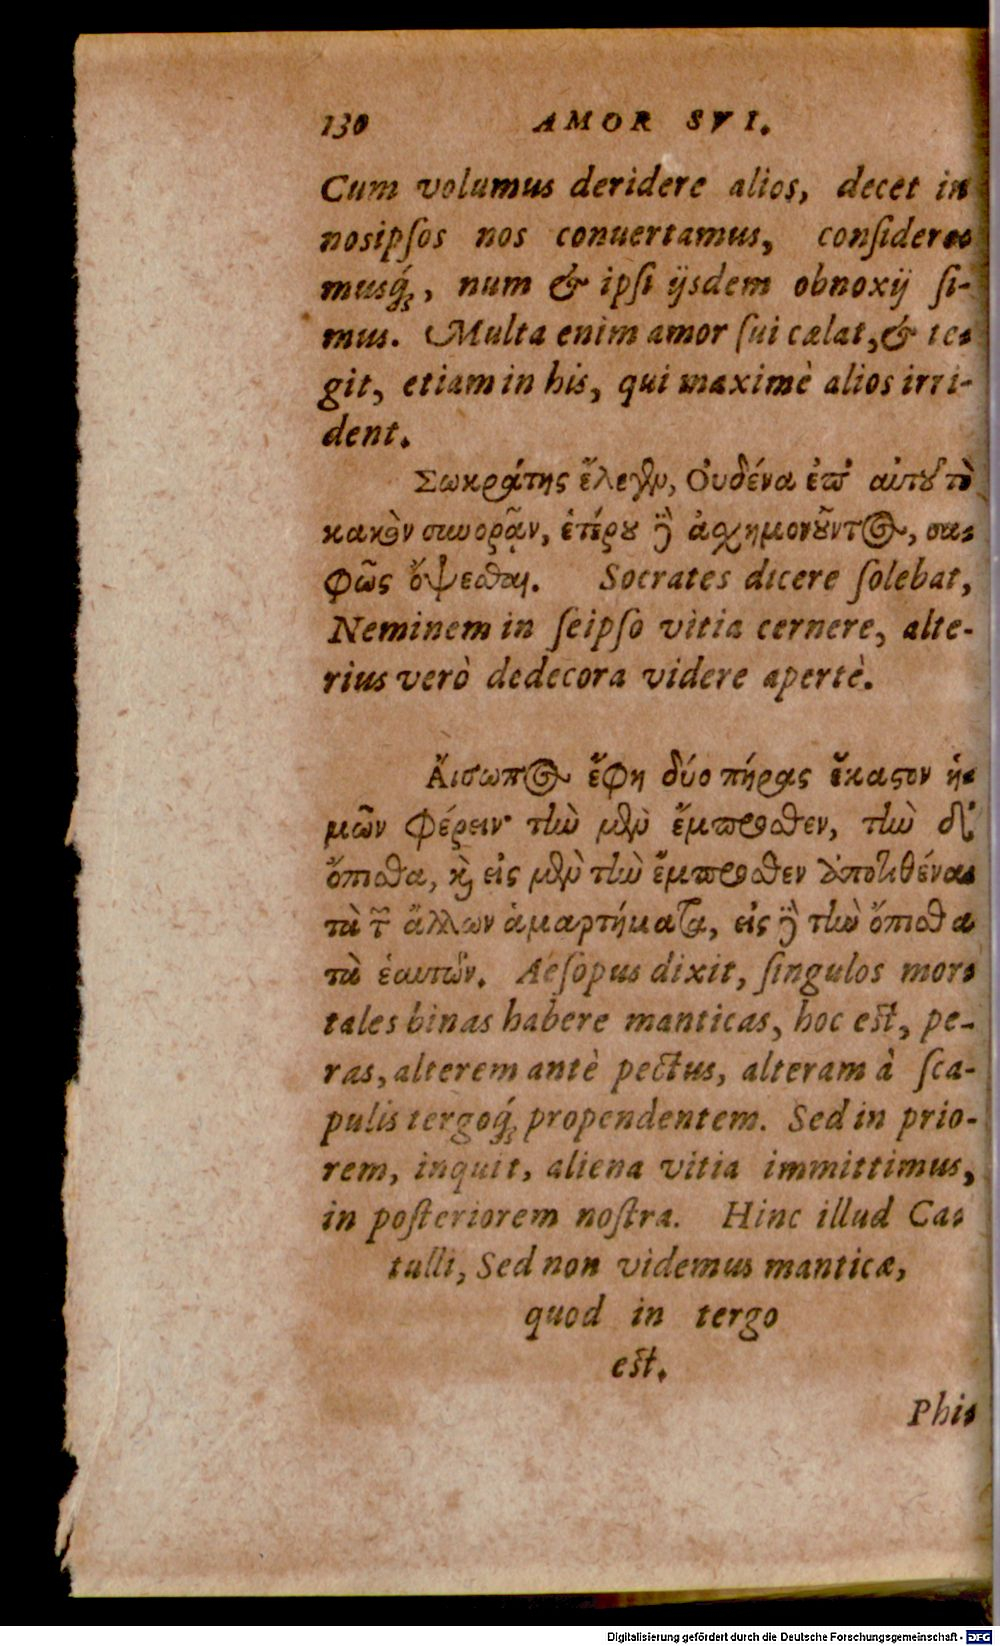 130 AMOR SVI.
Cum volumus deridere alios, decet in
nosipſos nos conuertamus, conſidere-
musq́;, num & ipſi ijsdem obnoxij ſi-
mus. Multa enim amor ſui cælat, & te-
git, etiam in his, qui maximè alios irri-
dent.
Σωκράτης ἔλεγεν, Οὐδένα ἐπ' αὐτοῦ τὸ
κακὸν συνορᾷν, ἑτέρου δὲ ἀσχημονοῦντος, σα-
φῶς ὄψεσθαι. Socrates dicere ſolebat,
Neminem in ſeipſo vitia cernere, alte-
rius verò dedecora videre apertè.
Ἄισωπος ἔφη δύο πήρας ἕκαστον ἡ-
μῶν φέρειν· τὴν μὲν ἔμπροσθεν, τὴν δ'
ὄπισθα, καὶ εἰς μὲν τὴν ἔμπροσθεν ἀποτιθέναι
τὰ τῶν ἄλλων ἁμαρτήματα, εἰς δὲ τὴν ὄπισθα
τὰ ἑαυτῶν. Aeſopus dixit, ſingulos mor-
tales binas habere manticas, hoc eſt, pe-
ras, alterem antè pectus, alteram à ſca-
pulis tergoq́; propendentem. Sed in prio-
rem, inquit, aliena vitia immittimus,
in poſteriorem noſtra. Hinc illud Ca-
tulli, Sed non videmus manticæ,
quod in tergo
eſt.
Phi-
Digitalisierung gefördert durch die Deutsche Forschungsgemeinschaft - DFG